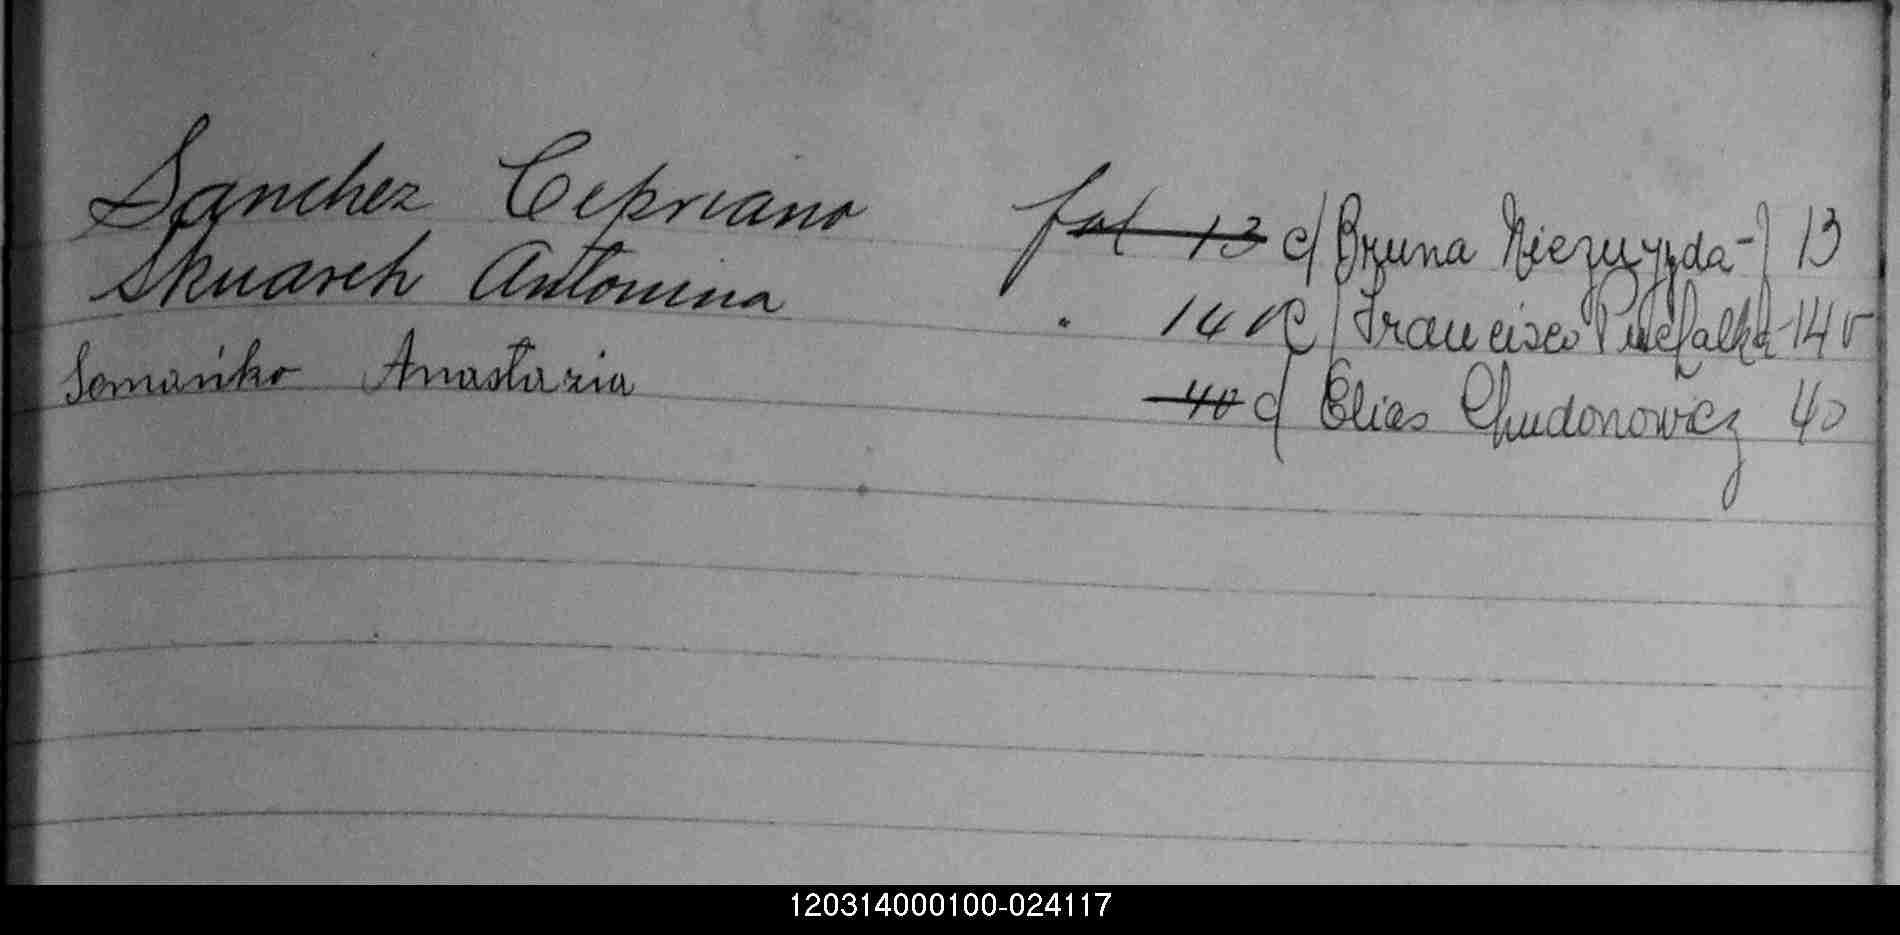 Sanchez Cipriano fol 13 c/ Bruna - f 13
Skuarek Antonina " 14 v c/ Francisco - 14 v
Semańko Anastazia 40 c/ Elias Chudonowicz 40
120314000100-024117